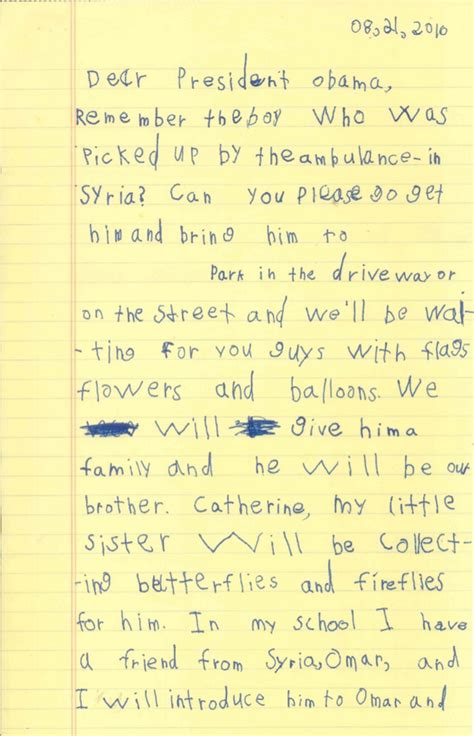 08,21,2010
Dear President obama,
Remember the boy Who Was
Picked up by the ambulance-in
Syria? Can you please go get
him and bring him to
Park in the driveway or
on the street and we'll be wai-
-ting for you guys with flags
flowers and balloons. We
will give him a
family and he will be our
brother. Catherine, my little
sister Will be collect-
-ing butterflies and fireflies
for him. In my school I have
a friend from Syria, Omar, and
I will introduce him to Omar and